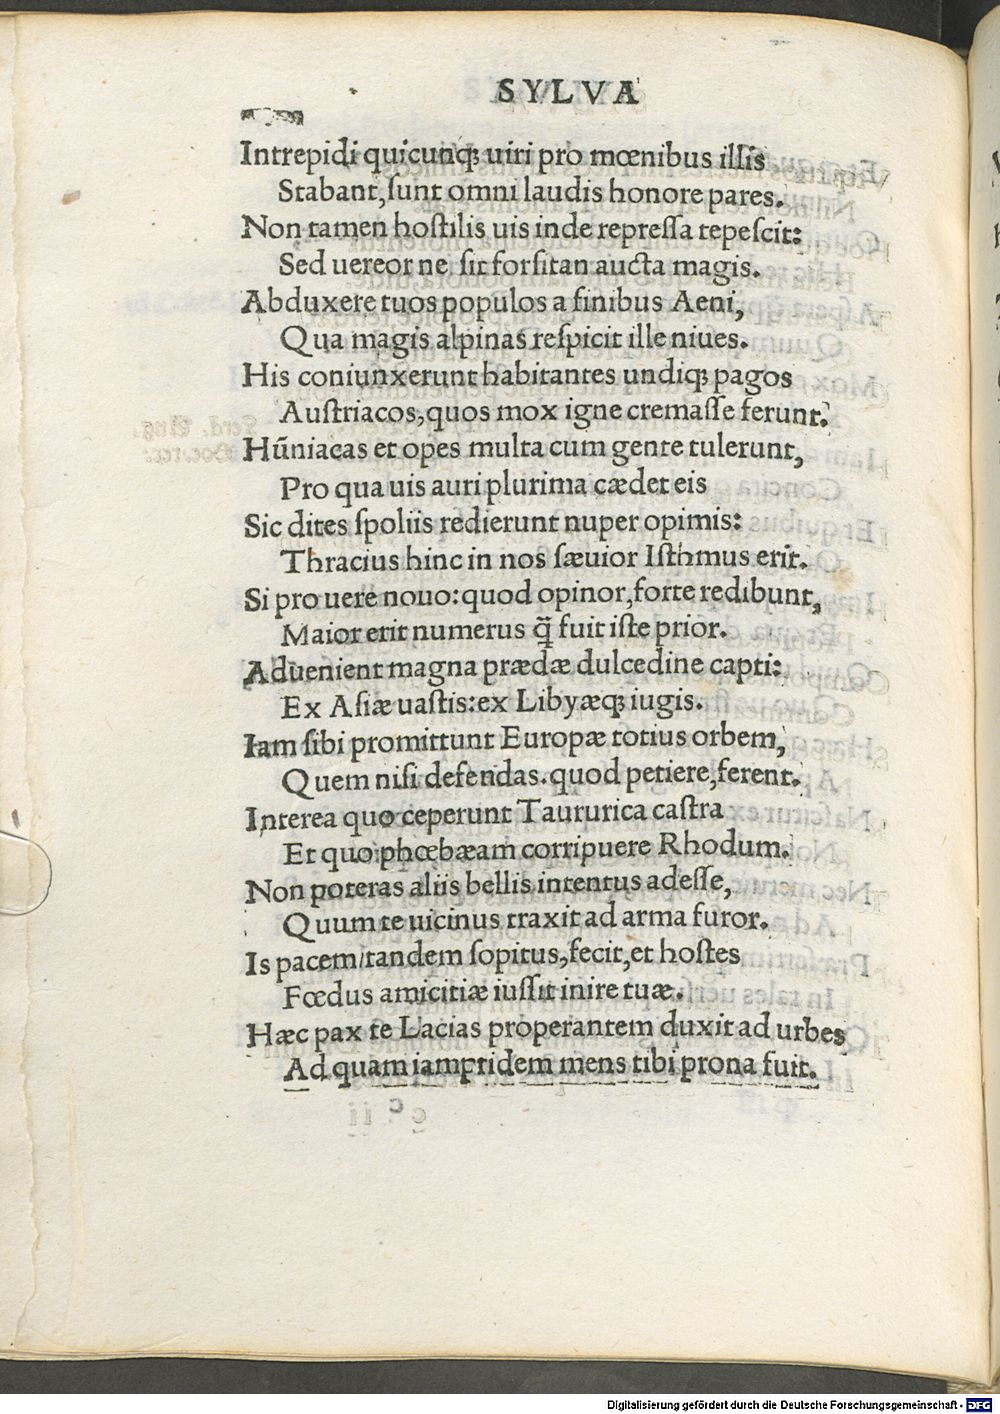 SYLVA
Intrepidi quicunqꝫ uiri pro mœnibus illis
Stabant, ſunt omni laudis honore pares.
Non tamen hoſtilis uis inde repreſſa tepeſcit:
Sed uereor ne ſit forſitan aucta magis.
Abduxere tuos populos a finibus Aeni,
Qua magis alpinas reſpicit ille niues.
His coniunxerunt habitantes undiqꝫ pagos
Auſtriacos, quos mox igne cremaſſe ferunt.
Hūniacas et opes multa cum gente tulerunt,
Pro qua uis auri plurima cædet eis
Sic dites ſpoliis redierunt nuper opimis:
Thracius hinc in nos ſæuior Iſthmus erit.
Si pro uere nouo: quod opinor, forte redibunt,
Maior erit numerus q̃ fuit iſte prior.
Aduenient magna prædæ dulcedine capti:
Ex Aſiæ uaſtis: ex Libyæqꝫ iugis.
Iam ſibi promittunt Europæ totius orbem,
Quem niſi defendas. quod petiere, ferent.
Interea quo ceperunt Taururica caſtra
Et quo phœbæam corripuere Rhodum.
Non poteras aliis bellis intentus adeſſe,
Quum te uicinus traxit ad arma furor.
Is pacem tandem ſopitus, fecit, et hoſtes
Fœdus amicitiæ iuſſit inire tuæ.
Hæc pax te Lacias properantem duxit ad urbes
Ad quam iampridem mens tibi prona fuit.
Digitalisierung gefördert durch die Deutsche Forschungsgemeinschaft - DFG